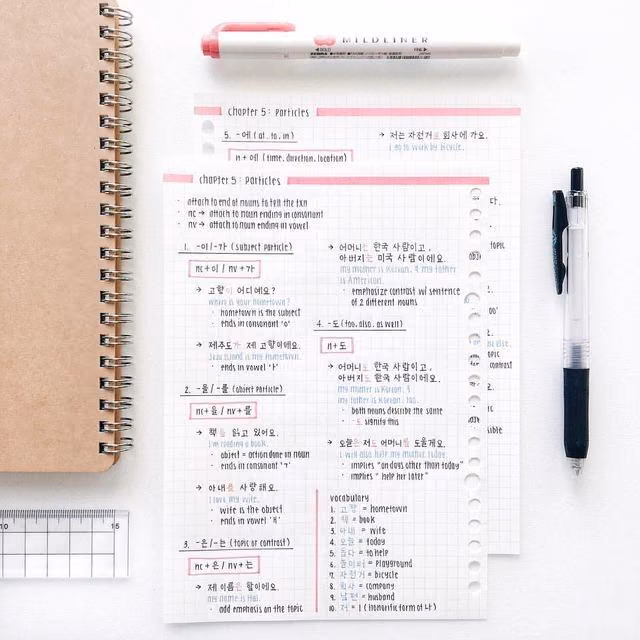 MILDLINER
Chapter 5: Particles
5. -에 (at, to, in)
n + 에 (time, direction, location)
→ 저는 자전거로 회사에 가요.
I go to work by bicycle.
Chapter 5: Particles
· attach to end of nouns to tell the fxn
· nc → attach to noun ending in consonant
· nv → attach to noun ending in vowel
1. -이/-가 (subject particle)
nc + 이 / nv + 가
→ 고향이 어디예요?
where is your hometown?
· hometown is the subject
· ends in consonant 'ㅇ'
→ 제주도가 제 고향이에요.
Jeju Island is my hometown.
· ends in vowel 'ㅏ'
2. -을/-를 (object particle)
nc + 을 / nv + 를
→ 책을 읽고 있어요.
I'm reading a book.
· object = action done in noun
· ends in consonant 'ㄱ'
→ 아내를 사랑해요.
I love my wife.
· wife is the object
· ends in vowel 'ㅐ'
3. -은/-는 (topic or contrast)
nc + 은 / nv + 는
→ 제 이름은 할이에요.
my name is Hal.
· add emphasis on the topic
→ 어머니는 한국 사람이고,
아버지는 미국 사람이에요.
my mother is Korean, & my father
is American.
· emphasize contrast w/ sentence
of 2 different nouns
4. -도 (too, also, as well)
n + 도
→ 어머니도 한국 사람이고,
아버지도 한국 사람이에요.
my mother is Korean, &
my father is Korean, too.
· both nouns describe the same
· -도 signify this
→ 오늘은 저도 어머니를 도울게요.
I will also help my mother today.
· implies "on days other than today"
· implies "help her later"
vocabulary
1. 고향 = hometown
2. 책 = book
3. 아내 = wife
4. 오늘 = today
5. 돕다 = to help
6. 놀이터 = playground
7. 자전거 = bicycle
8. 회사 = company
9. 남편 = husband
10. 저 = I (honorific form of 나)
다.
topic
else.
topic
contrast
10
15